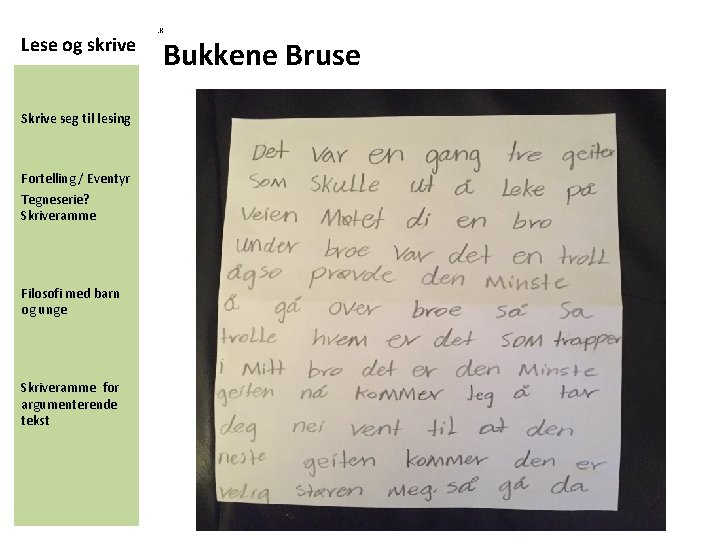 .K
Lese og skrive
Bukkene Bruse
Skrive seg til lesing
Fortelling / Eventyr
Tegneserie?
Skriveramme
Filosofi med barn
og unge
Skriveramme for
argumenterende
tekst
Det var en gang tre geiter
som skulle ut å leke på
veien Møtet di en bro
under broe var det en troll
ågso prøvde den Minste
å gå over broe så sa
trolle hvem er det som trapper
i Mitt bro det er den Minste
geiten nå kommer Jeg å tar
deg nei vent til at den
neste geiten kommer den er
velig støren Meg. så gå da